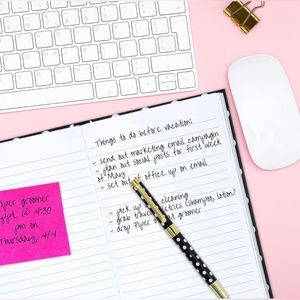 Things to do before vacation:
- send out marketing email campaign
- plan out social posts for first week
of May
- set out of office up on email
- pick up cleaning
- grab travel (shampoo, lotion)
- drop Piper groomer
Piper groomer
appt @ 4:30
pm on
Thursday, 4/4